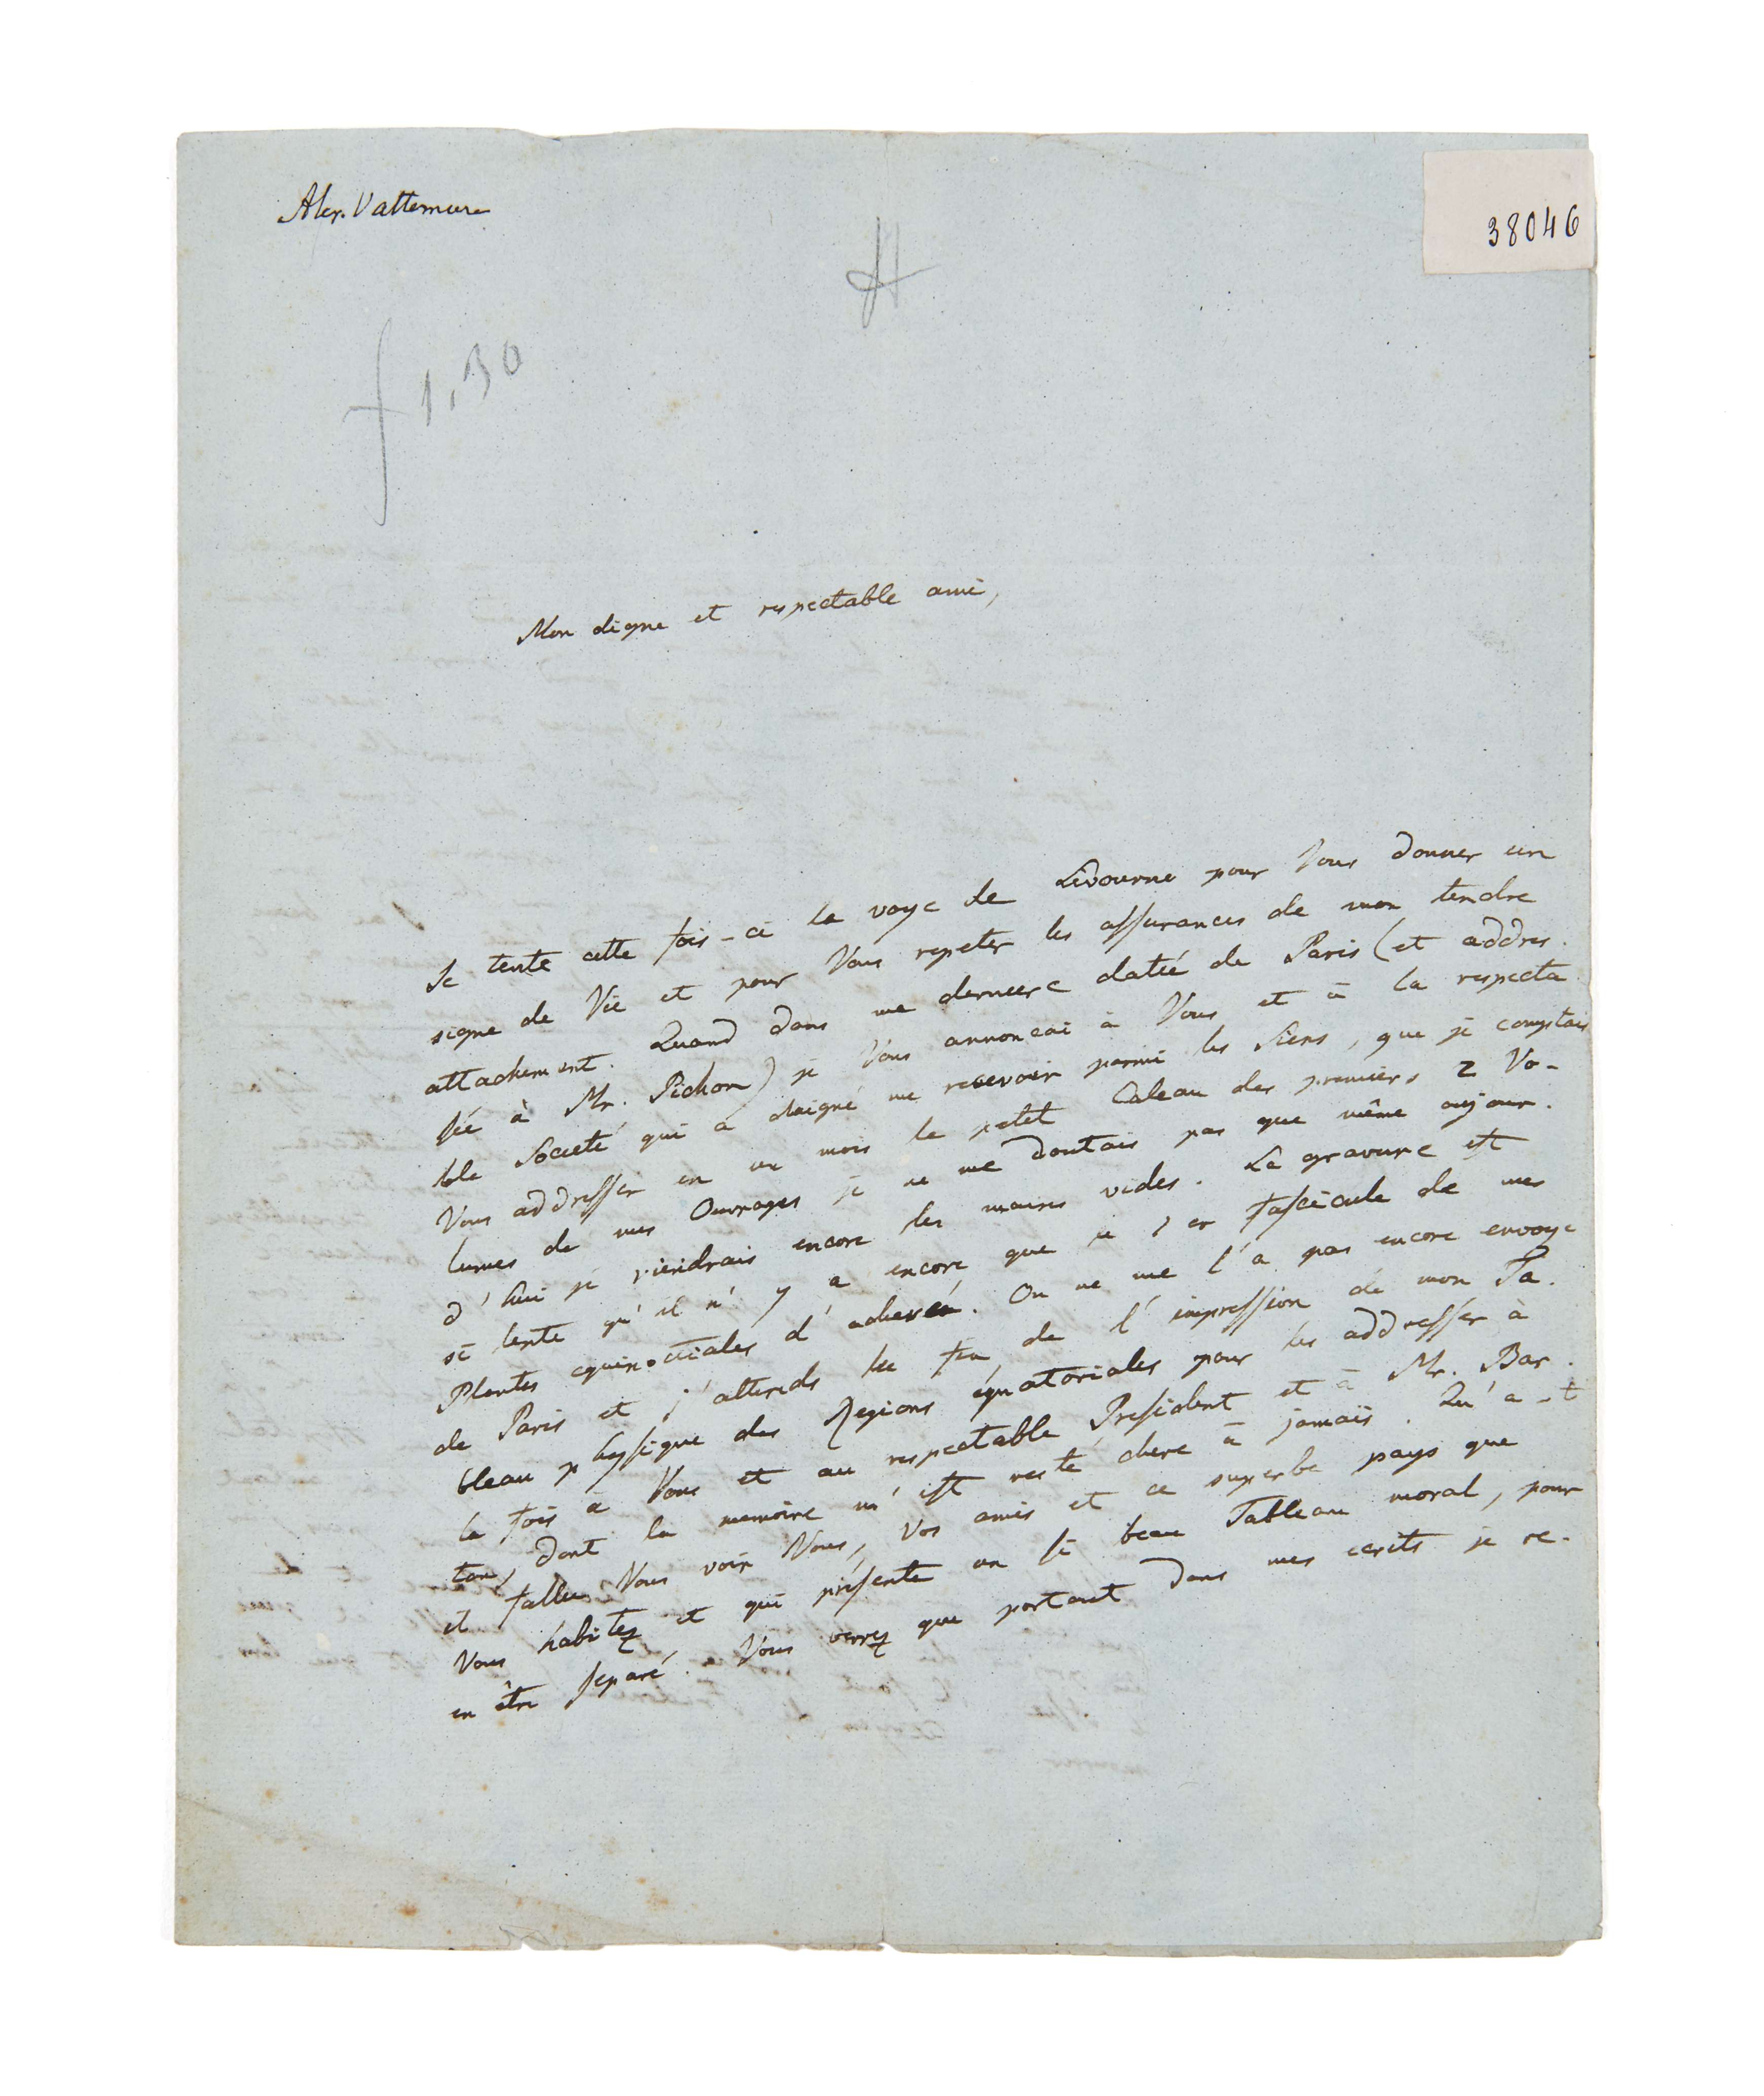 Alex. Vattemare
38046
H
f 1,30
Mon digne et respectable ami,
Je tente cette fois-ci la voye de Livourne pour Vous donner un
signe de Vie et pour Vous repeter les assurances de mon tendre
attachement. Quand dans ma derniere datée de Paris (et addres-
sée à Mr. Pichon) je Vous annonçai à Vous et à la respecta
ble Societé qui a daigné me recevoir parmi les Siens, que je comptais
Vous addresser en un mois le petit Cadeau des premiers 2 Vo-
lumes de mes Ouvrages je ne me doutais pas que même aujour-
d'hui je viendrais encore les mains vides. La gravure est
si lente qu'il n'y a encore que le 1er fascicule de mes
Plantes equinoctiales d'achevé. On ne me l'a pas encore envoye
de Paris et j'attends la fin de l'impression de mon Ta-
bleau physique des Regions équatoriales pour les addresser à
la fois à Vous et au respectable President et à Mr. Bar-
ton, dont la memoire m'est resté chere à jamais. Qu'a-t
il fallu Vous voir Vous, Vos amis et ce superbe pays que
Vous habitez et qui présente un si beau Tableau moral, pour
en être separé. Vous verrez que partout dans mes ecrits je re-